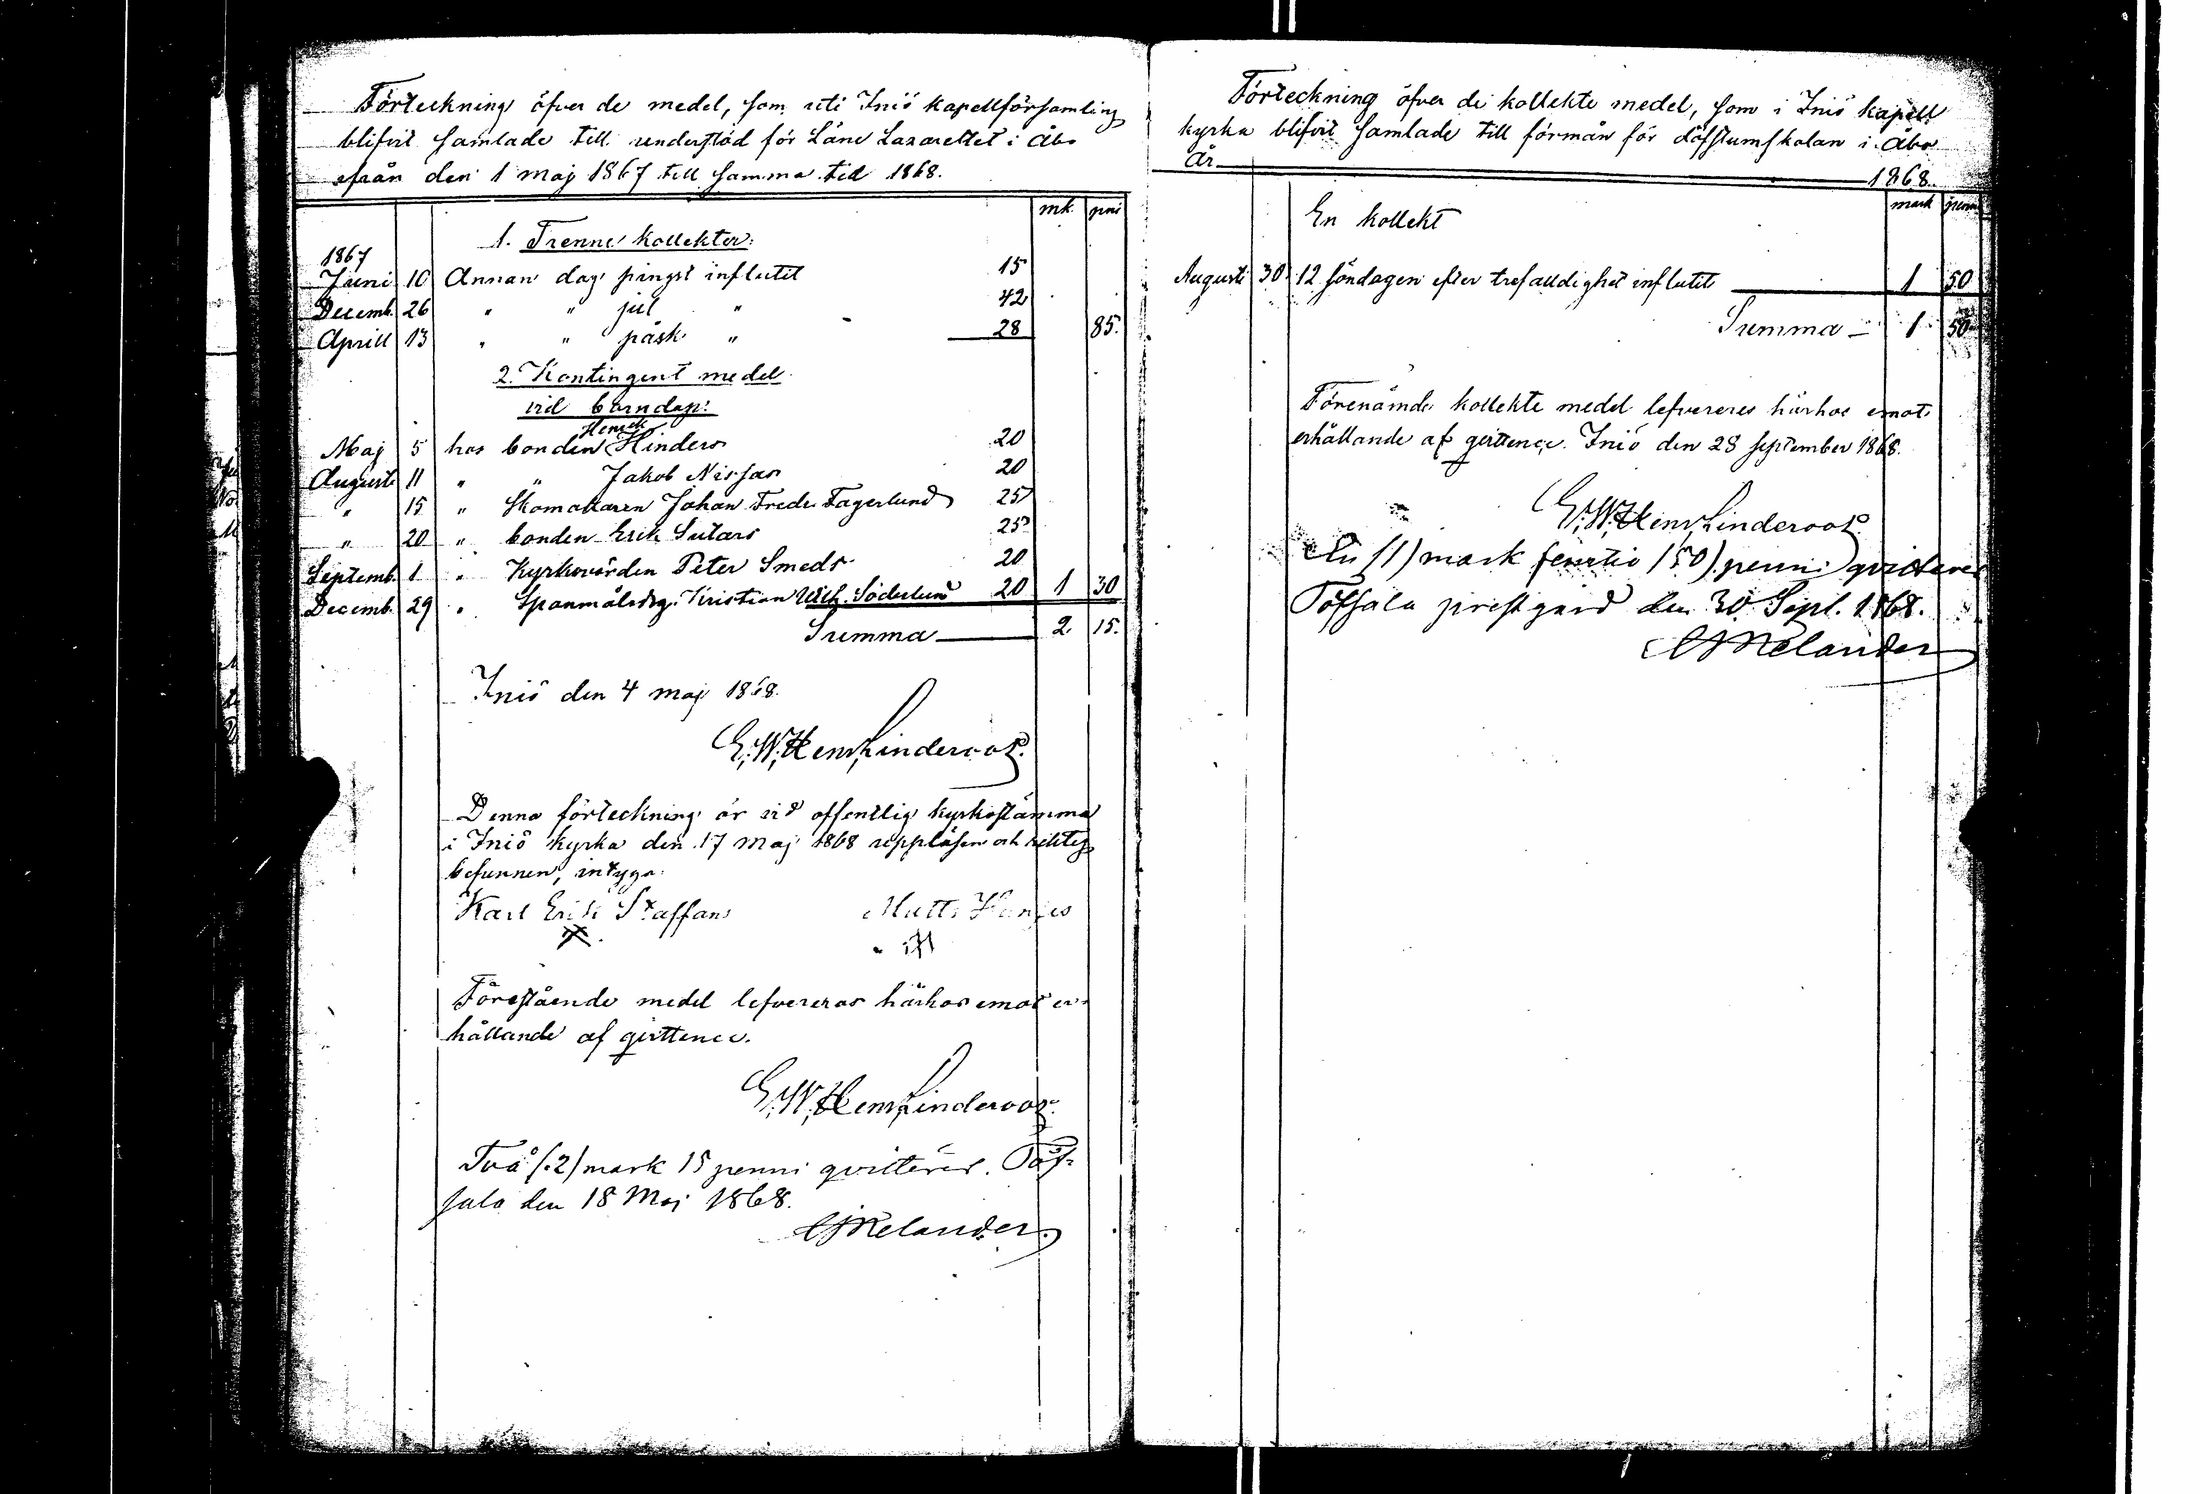 Förteckning öfver de medel, som uti Iniö kapellförsamling
blifvit samlade till understöd för Läne Lazarettet i Åbo
ifrån den 1 maj 1867 till samma tid 1868.
mk. pni
1. Trenne kollekter:
1867
Juni 10 Annan dag pingst influtit 15
Decemb. 26 " " jul " 42
Aprill 13 " " påsk " 28 85.
2. Kontingent medel
vid barndop:
Henrik
Maj 5 hos bonden Hinders 20
Augusti 11 " " Jakob Nissas 20
" 15 " Skomakaren Johan Fredr. Fagerlund 25
" 20 " bonden Erik Sutars 25
Septemb. 1 " Kyrkovärden Peter Smeds 20
Decemb. 29 " Kristian Wilh. Söderlund 20 1 30
Summa 2 15.
Iniö den 4 maj 1868.
G. W. Henr. Linderoos.
Denna förteckning är vid offentlig kyrkostämma
i Iniö kyrka den 17 maj 1868 uppläsen och riktig
befunnen, intyga:
Karl Erik Staffans Matts
Förestående medel lefvereras härhos emot er-
hållande af qvittence.
G. W. Henr. Linderoos.
Två (2) mark 15 penni qvitteras. Töf-
sala den 18 Maj 1868.
Melander.
Förteckning öfver de kollekte medel, som i Iniö kapell
kyrka blifvit samlade till förmån för döfstumskolan i Åbo
År 1868.
mark penni
En kollekt
Augusti 30 12 söndagen efter trefaldighet influtit 1 50
Summa 1 50
Förenämnde kollekte medel lefvereres härhos emot
erhållande af qvittence. Iniö den 28 september 1868.
G. W. Henr. Linderoos.
En (1) mark femtio (50) penni qvitteras
Töfsala prestgård den 30 Sept. 1868.
Melander